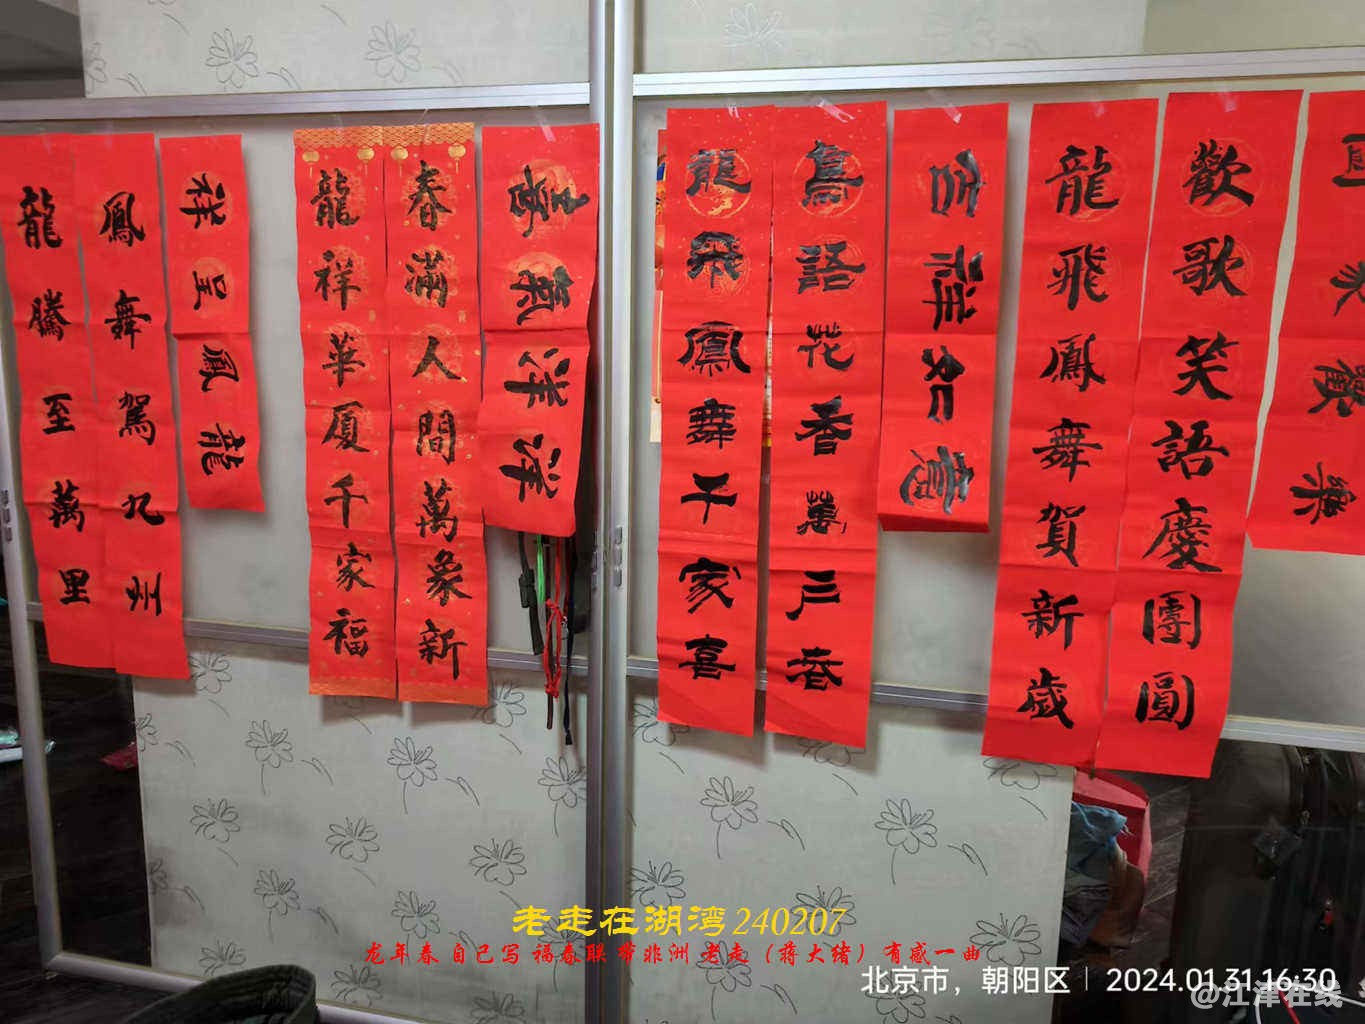 龍騰至萬里
鳳舞駕九州
祥呈鳳龍
龍祥華厦千家福
春滿人間萬象新
喜氣洋洋
龍飛鳳舞千家喜
鳥語花香萬戶春
吉祥如意
龍飛鳳舞賀新歲
歡歌笑語慶團圓
賀樂
老走在湖湾240207
龙年春 自己写 福春联 带非洲 老走（蒋大绪）有感一曲
北京市，朝阳区 | 2024.01.31 16:30
@江津在线